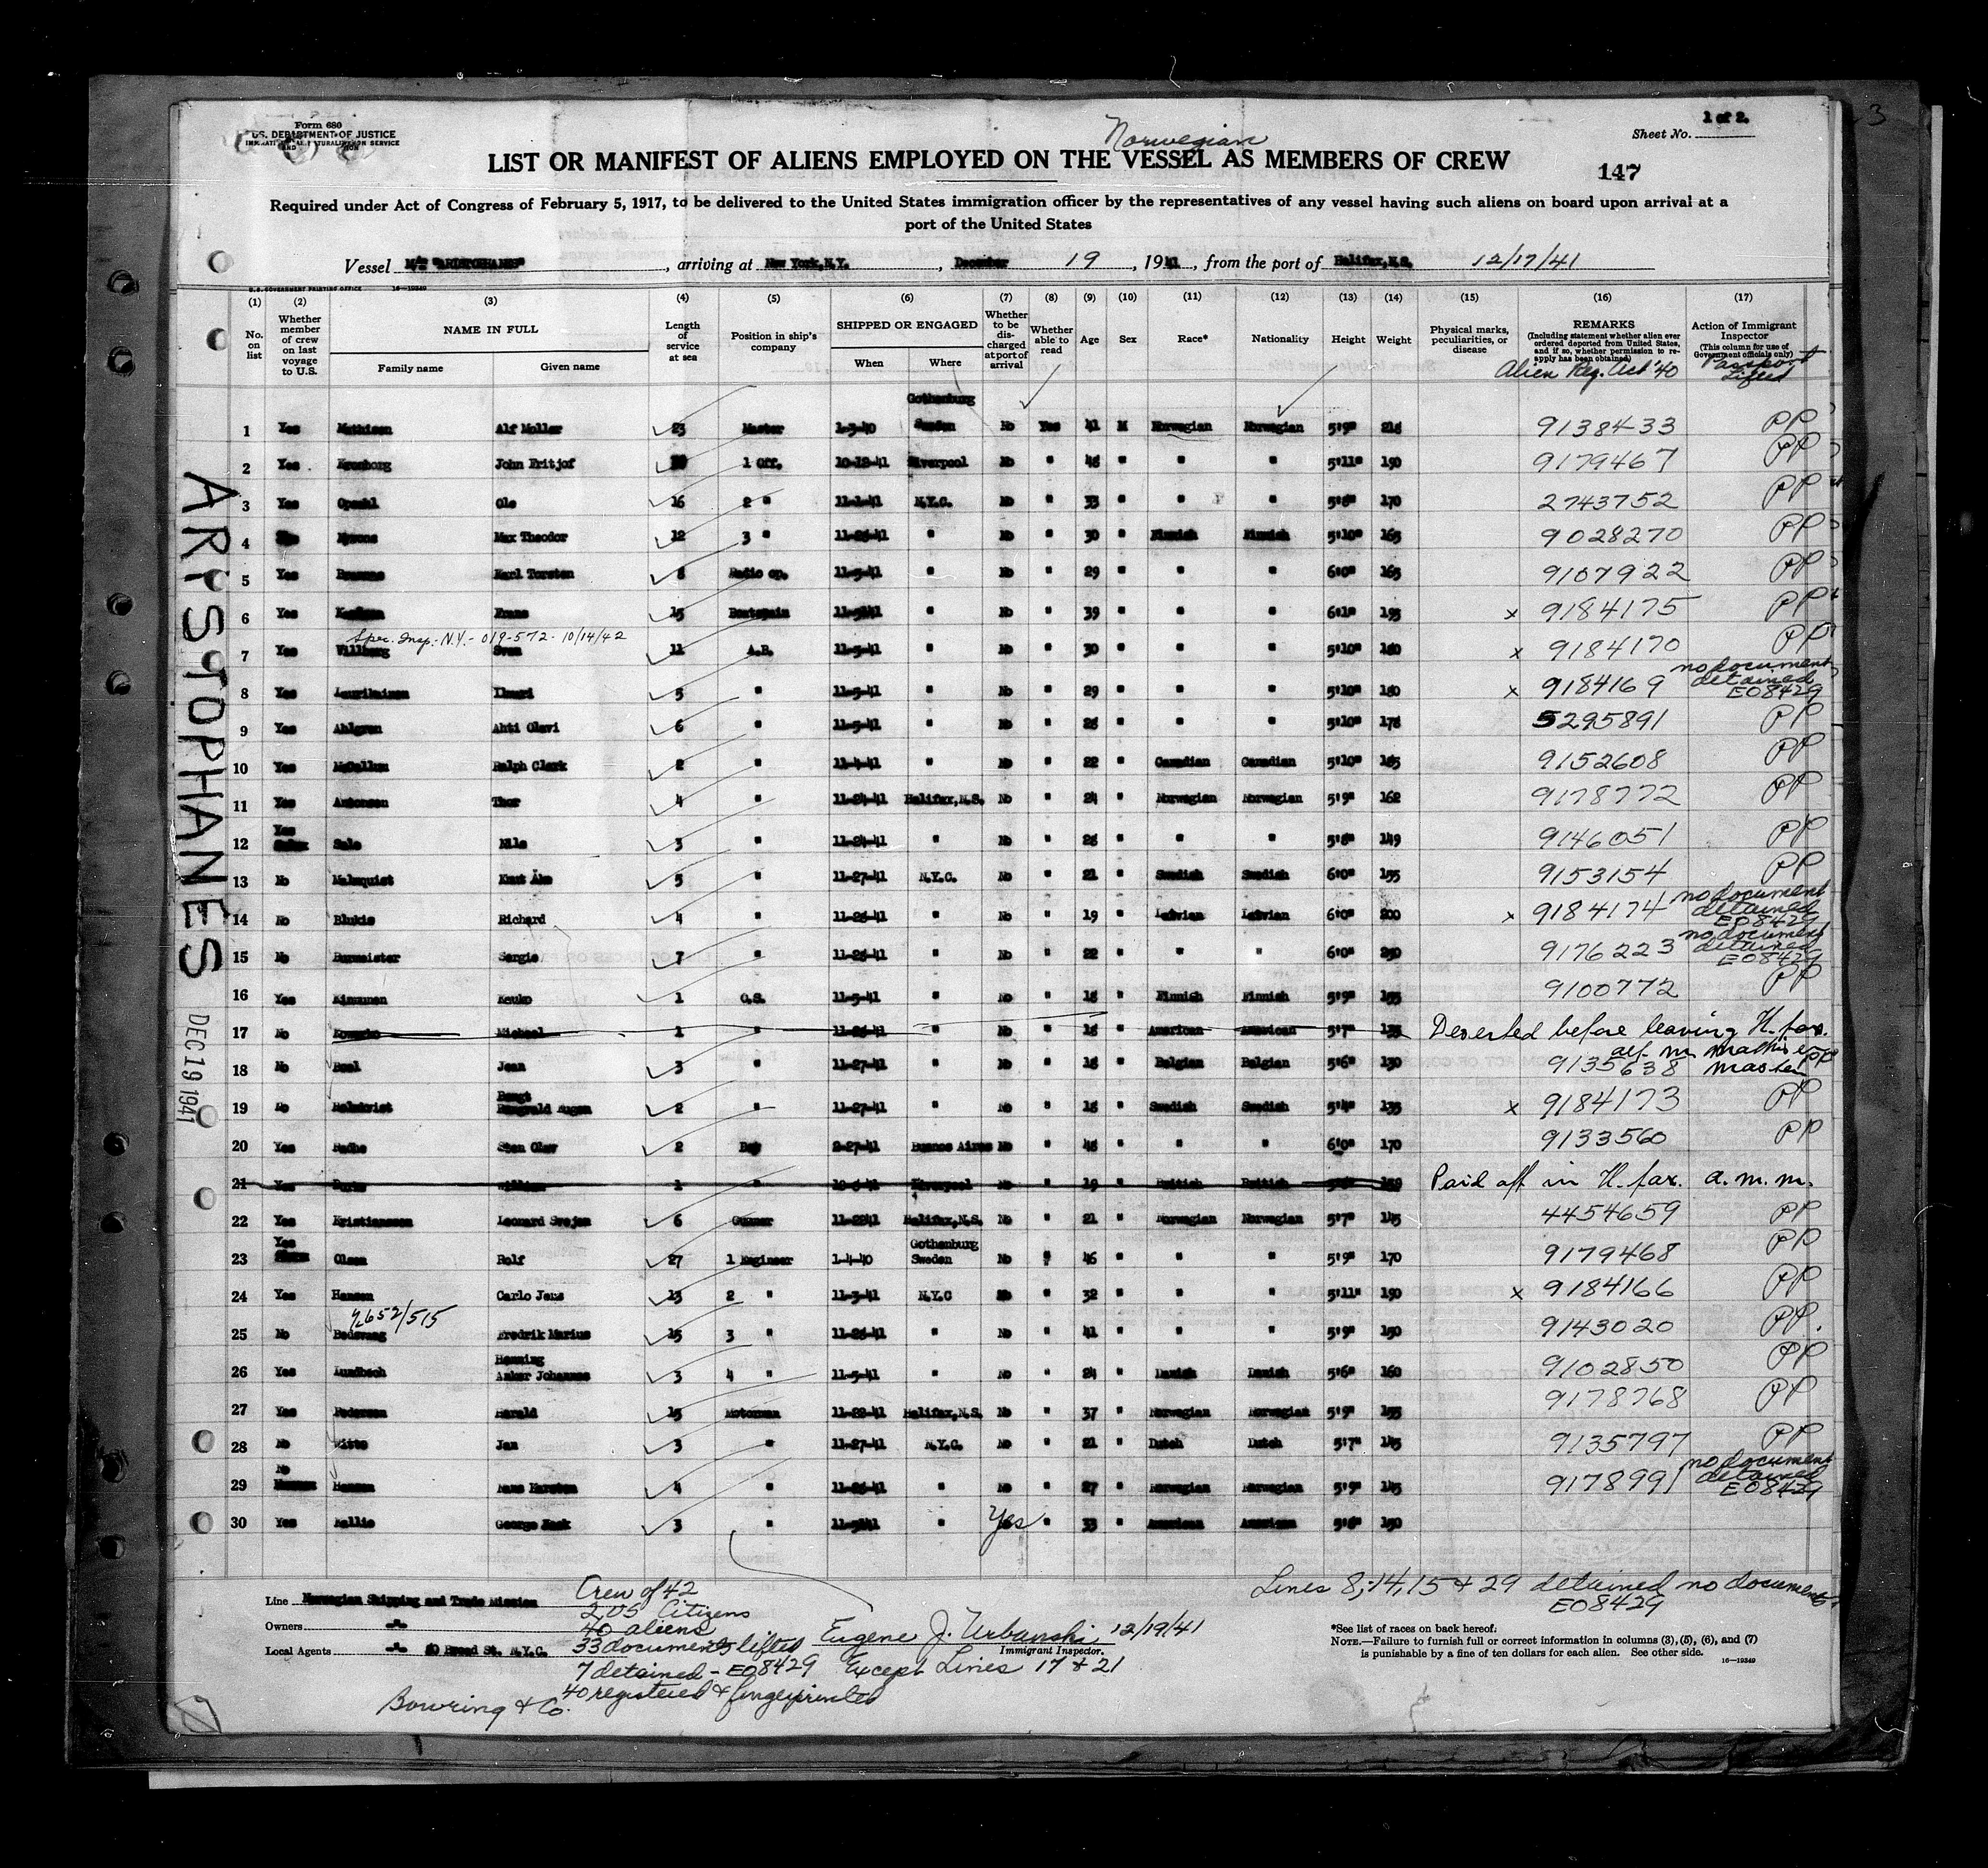 Form 680
U.S. DEPARTMENT OF JUSTICE
IMMIGRATION AND NATURALIZATION SERVICE
Sheet No. 1 of 2.
Norwegian
LIST OR MANIFEST OF ALIENS EMPLOYED ON THE VESSEL AS MEMBERS OF CREW
147
Required under Act of Congress of February 5, 1917, to be delivered to the United States immigration officer by the representatives of any vessel having such aliens on board upon arrival at a
port of the United States
Vessel "ARISTOPHANES", arriving at New York, N.Y., December 19, 1941, from the port of Halifax, N.S. 12/17/41
U.S. GOVERNMENT PRINTING OFFICE 16—19349
(1) (2) (3) (4) (5) (6) (7) (8) (9) (10) (11) (12) (13) (14) (15) (16) (17)
No. on list
Whether member of crew on last voyage to U.S.
NAME IN FULL
Family name
Given name
Length of service at sea
Position in ship's company
SHIPPED OR ENGAGED
When
Where
Whether to be discharged at port of arrival
Whether able to read
Age
Sex
Race*
Nationality
Height
Weight
Physical marks, peculiarities, or disease
REMARKS
(Including statement whether alien ever ordered deported from United States, and if so, whether permission to reapply has been obtained)
Alien Reg. Act '40
Action of Immigrant Inspector
(This column for use of Government officials only)
Passport Lifted
Gothenburg
1 Yes Mathisen Alf Moller 23 Master 1-3-40 Sweden No Yes 41 M Norwegian Norwegian 5'9" 9138433 PP
2 Yes John Fritjof 1 Off. Liverpool No " " " " 5'11" 190 9179467 PP
3 Yes Opdahl Ole 16 2 " 11-1-41 N.Y.C. No " 33 " " " 5'8" 170 2743752 PP
4 Max Theodor 12 3 " " No " 30 " Finnish Finnish 5'10" 165 9028270 PP
5 Yes Karl Torsten 8 Radio op. 11-5-41 " No " 29 " " " 6'0" 165 9107922 PP
6 Yes Frans 15 " No " 39 " " " 6'1" 195 x 9184175 PP
Spec. Insp. N.Y. - 019-572 - 10/14/42
7 Yes Sven 11 A.B. 11-5-41 " No " 30 " " " 5'10" x 9184170 PP
8 Yes Ilmari 5 " 11-5-41 " No " 29 " " " 5'10" x 9184169 no document detained E08429
9 Yes Ahlgren Ahti Olavi 6 " 11-5-41 " No " " " " 5'10" 5295891 PP
10 Yes McCallum Ralph Clark 2 " 11-4-41 " No " 22 " Canadian Canadian 5'10" 9152608 PP
11 Yes Antonsen Thor 4 " 11-24-41 Halifax, N.S. No " 24 " Norwegian Norwegian 5'9" 162 9178772 PP
12 Yes Nils 3 " 11-24-41 " No " " " " 5'8" 149 9146051 PP
13 No Malmquist Knut Åke 5 " 11-27-41 N.Y.C. No " 21 " Swedish Swedish 6'0" 155 9153154 PP
14 No Blukis Richard 4 " " No " 19 " Latvian Latvian 6'0" 200 x 9184174 no document detained E08429
15 No Burmeister Sergie 7 " " No " 22 " " " 6'0" 9176223 no document detained E08429
16 Yes Kinnunen 1 O.S. 11-5-41 " No " 18 " Finnish Finnish 5'9" 155 9100772 PP
17 No Michael 1 " " No " 18 " American American 5'7" Deserted before leaving H. fax.
Alf M Mathisen Master
18 No Jean 3 " 11-27-41 " No " 18 " Belgian Belgian 5'6" 9135638 PP
19 No Bengt 2 " 11-27-41 " No " 18 " Swedish Swedish 5'4" 135 x 9184173 PP
20 Yes Sten Olav 2 Boy 2-27-41 Buenos Aires No " " " " 6'0" 170 9133560 PP
21 Yes William 1 " Liverpool No " 19 " British British Paid off in H. fax. A.M.M.
22 Yes Kristiansen Leonard Svejen 6 Gunner Halifax, N.S. No " 21 " Norwegian Norwegian 5'7" 145 4454659 PP
23 Yes Olsen Rolf 27 1 Engineer 1-4-40 Gothenburg Sweden No " 46 " " " 5'9" 170 9179468 PP
24 Yes Hansen Carlo Jens 13 2 " 11-3-41 N.Y.C No " 32 " " " 5'11" 190 x 9184166 PP
652/515
25 No Fredrik Marius 15 3 " " No " 41 " " " 5'9" 150 9143020 PP.
26 Yes Lundbech Henning Anker Johannes 3 4 " 11-5-41 " No " 24 " Danish Danish 5'6" 160 9102850 PP
27 Yes Pedersen Harald 15 Motorman Halifax, N.S. No " 37 " Norwegian Norwegian 5'9" 155 9178768 PP
28 No Witte Jan 3 " 11-27-41 N.Y.C. No " 21 " Dutch Dutch 5'7" 145 9135797 PP
29 No Hansen Hans Karsten 4 " " No " 27 " Norwegian Norwegian 5'9" 145 9178991 no document detained E08429
30 Yes Kallio George 3 " " Yes " 33 " American American 5'8" 150
ARISTOPHANES
DEC 19 1941
Line Norwegian Shipping and Trade Mission
Owners -"-
Local Agents -"- 80 Broad St. N.Y.C.
Bowring & Co.
Crew of 42
2 US Citizens
40 aliens
33 documents lifted
7 detained - E08429
40 registered & fingerprinted
Eugene J. Urbanski 12/19/41
Immigrant Inspector.
Except Lines 17 & 21
Lines 8, 14, 15 & 29 detained no documents
E08429
*See list of races on back hereof.
NOTE.—Failure to furnish full or correct information in columns (3), (5), (6), and (7)
is punishable by a fine of ten dollars for each alien. See other side.
16—19349